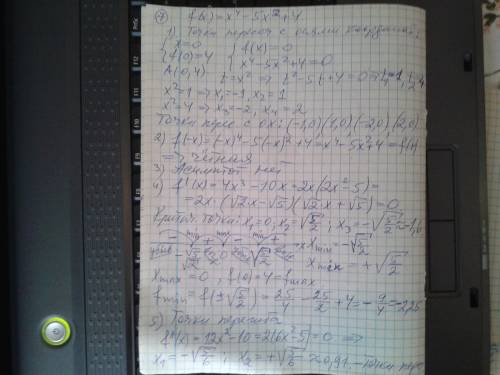 ⑦ f(x) = x⁴ - 5x² + 4
1) Точки пересеч с осями координат:
{ x=0 { f(x)=0
{ f(0)=4 { x⁴-5x²+4=0
A(0,4) t=x² => t²-5t+4=0 => t₁=1, t₂=4
x²=1 => x₁=-1, x₂=1
x²=4 => x₃=-2, x₄=2
Точки перес с OX: (-1,0) (1,0) (-2,0) (2,0)
2) f(-x)=(-x)⁴-5(-x)²+4=x⁴-5x²+4=f(x)
=> чётная
3) Асимптот нет
4) f'(x)=4x³-10x=2x(2x²-5)=
=2x(√2x-√5)(√2x+√5)=0
Критич. точки: x₁=0, x₂=√5/2; x₃=-√5/2≈-1,6
- min + max - min + x min=-√5/2
убыв -√5/2 0 √5/2 x min=+√5/2
x max=0, f(0)=4=f max
f min=f(±√5/2)=25/4-25/2+4=-9/4=-2,25
5) Точки перегиба
f''(x)=12x²-10=2(6x²-5)=0 =>
x₁=-√5/6; x₂=+√5/6≈0,91 - точки